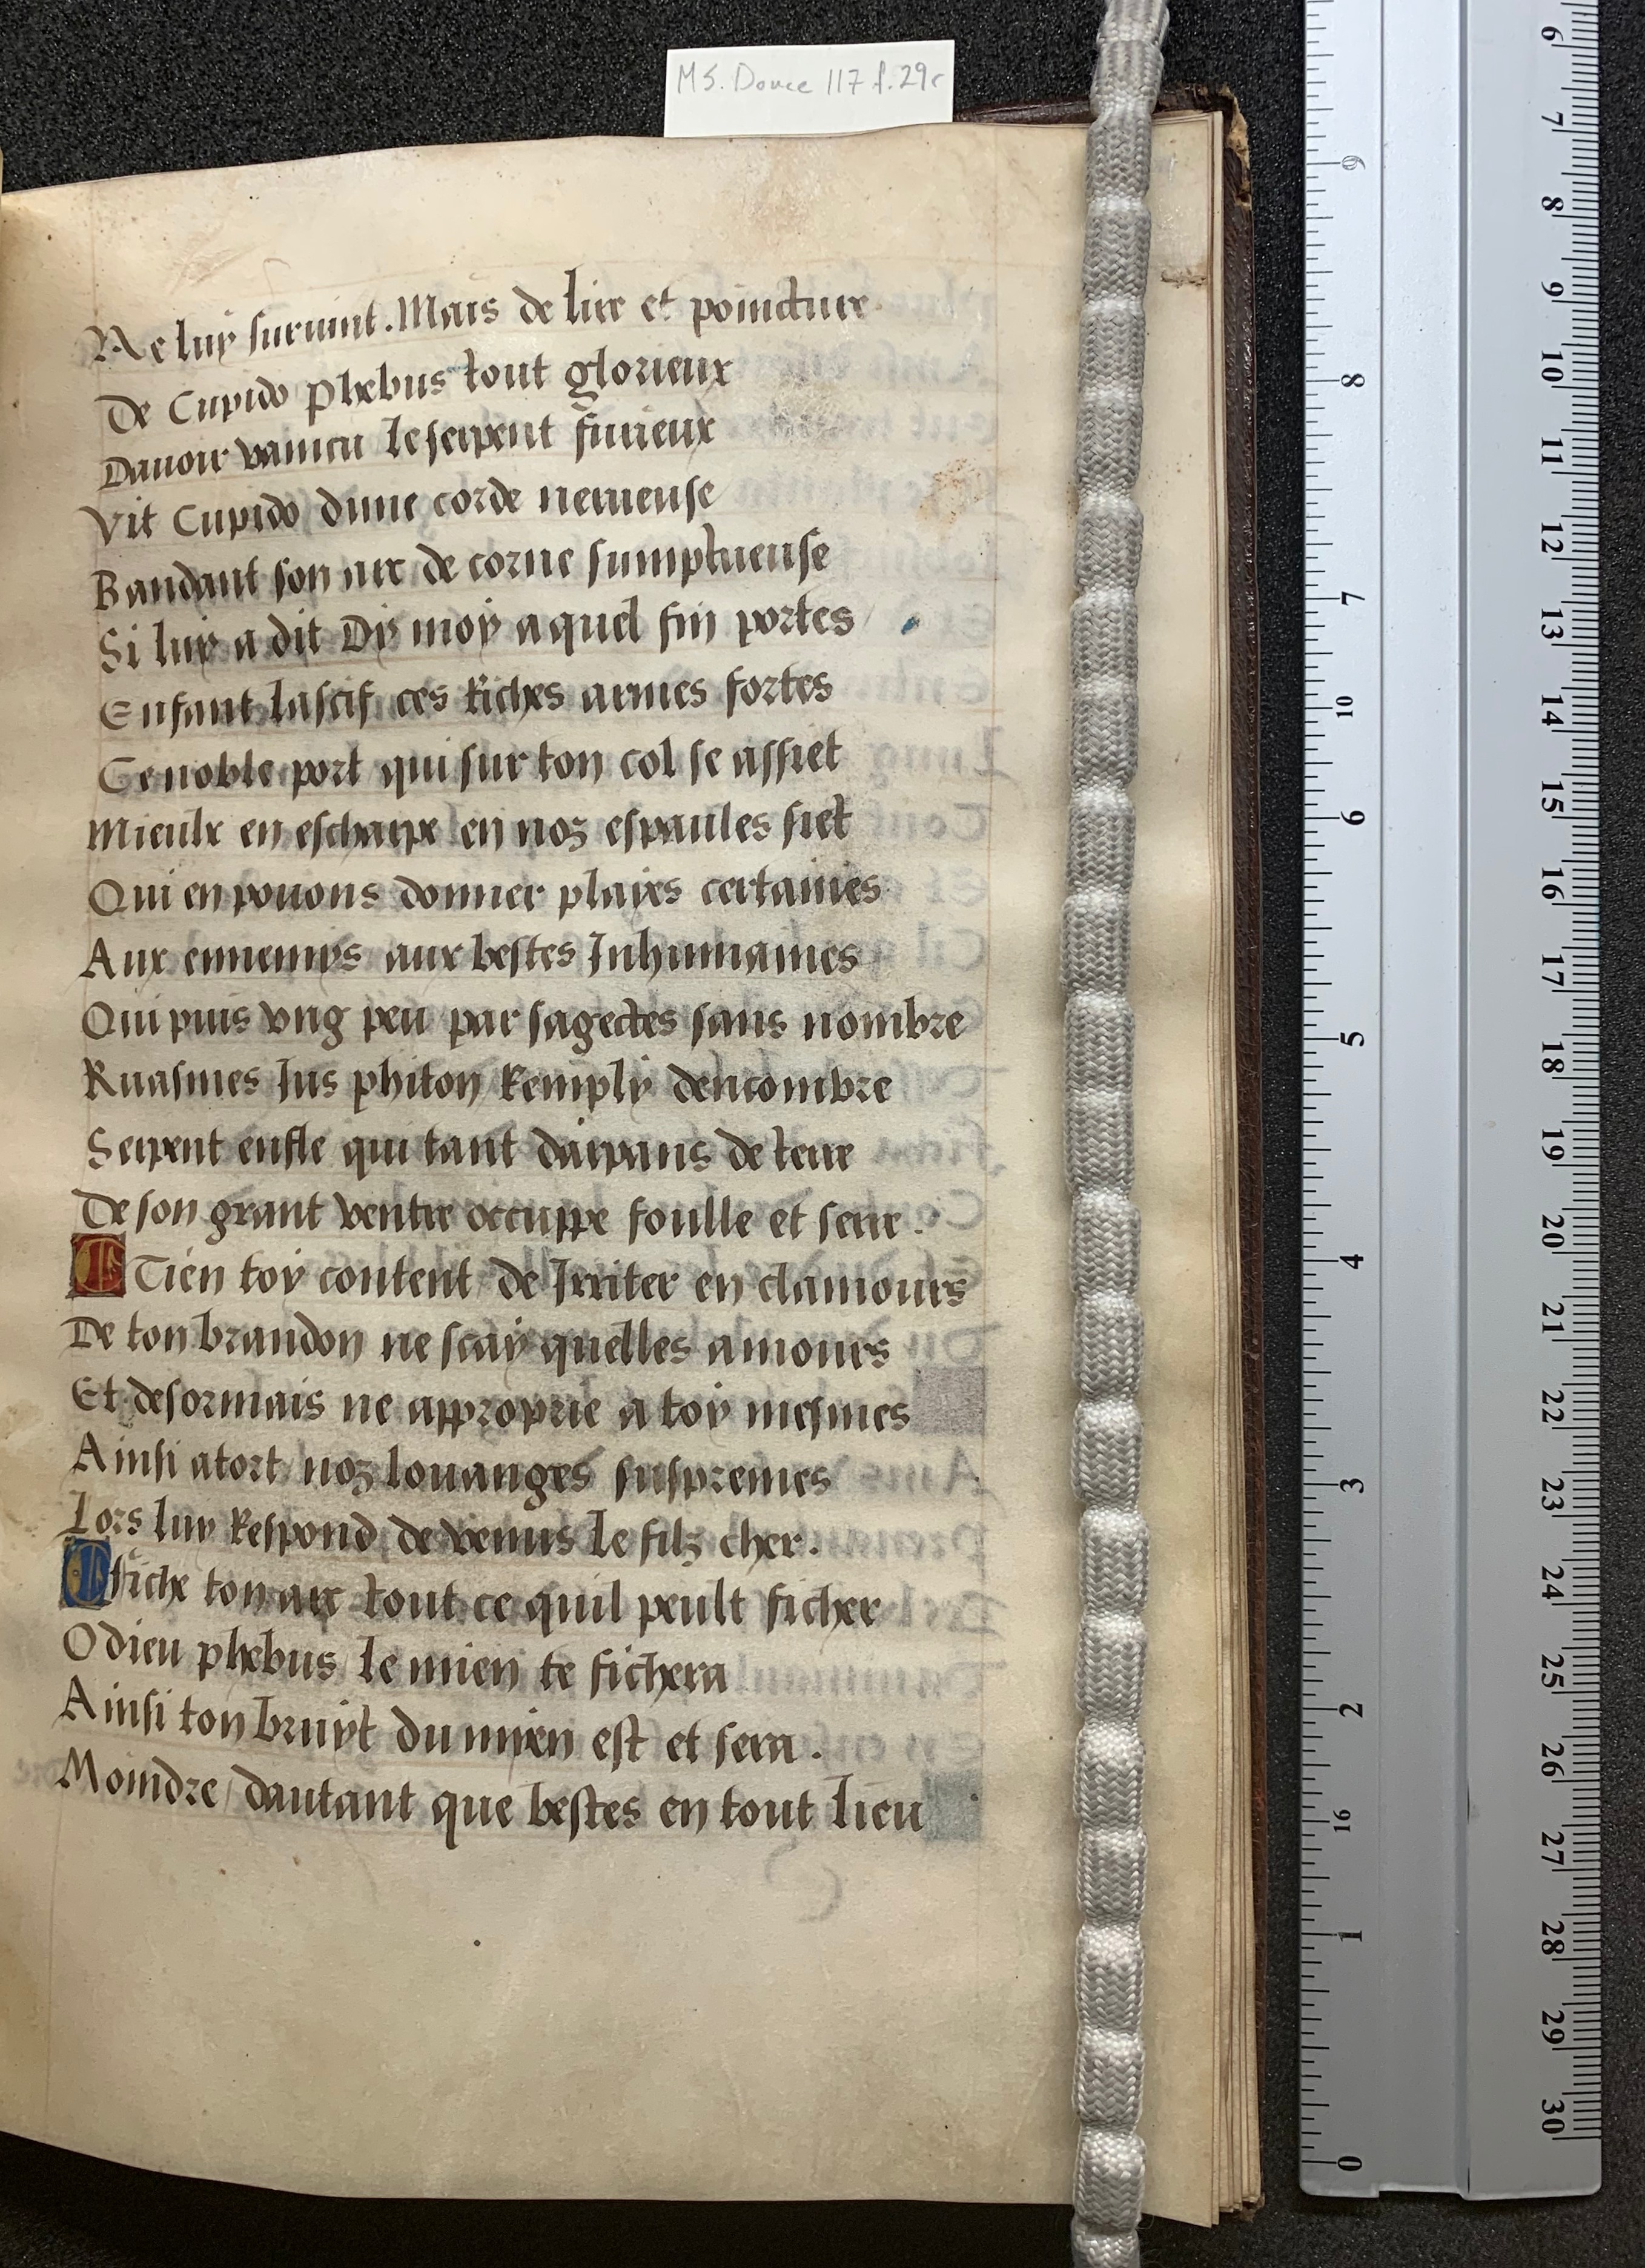 MS. Douce 117 f. 29r
Ne luy suruint. Mais de lire et poincture
De Cupido Phebus tout glorieux
Dauoir vaincu le serpent furieux
Vit Cupido dune corde nerueuse
Bandant son arc de corne sumptueuse
Si luy a dit Dy moy a quel fin portes
Enfant lascif ces Riches armes fortes
Ce noble port qui sur ton col se assiet
Mieulx en escharpe en noz espaules siet
Qui en pouons donner playes certaines
Aux ennemys aux bestes Inhumaines
Qui puis vng peu par sagectes sans nombre
Ruasmes Jus phiton Remply dencombre
Serpent enfle qui tant darpans de terre
De son grant ventre occuppe foulle et serre.
Tien toy content de Irriter en clamours
De ton brandon ne scay quelles amours
Et desormais ne approprie a toy mesmes
Ainsi atort noz louanges suspremes
Lors luy Respond de venus le filz cher.
Fiche ton arc tout ce quil peult ficher
O dieu phebus le mien te fichera
Ainsi ton bruyt du myen est et sera.
Moindre dautant que bestes en tout lieu
6
7
8
9
10
11
12
13
14
15
16
17
18
19
20
21
22
23
24
25
26
27
28
29
30
9
8
7
10
6
5
4
3
2
16
1
0